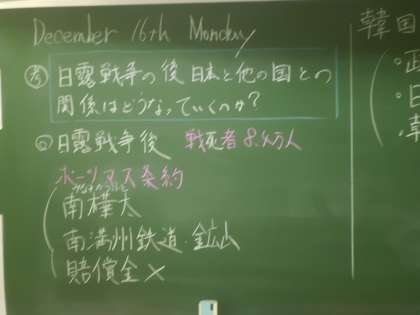 December 16th Monday
考 日露戦争の後日本と他の国との
関係はどうなっていくのか?
◎日露戦争後 戦死者8.4万人
ポーツマス条約
南樺太
南満州鉄道・鉱山
賠償金×
韓国
・日